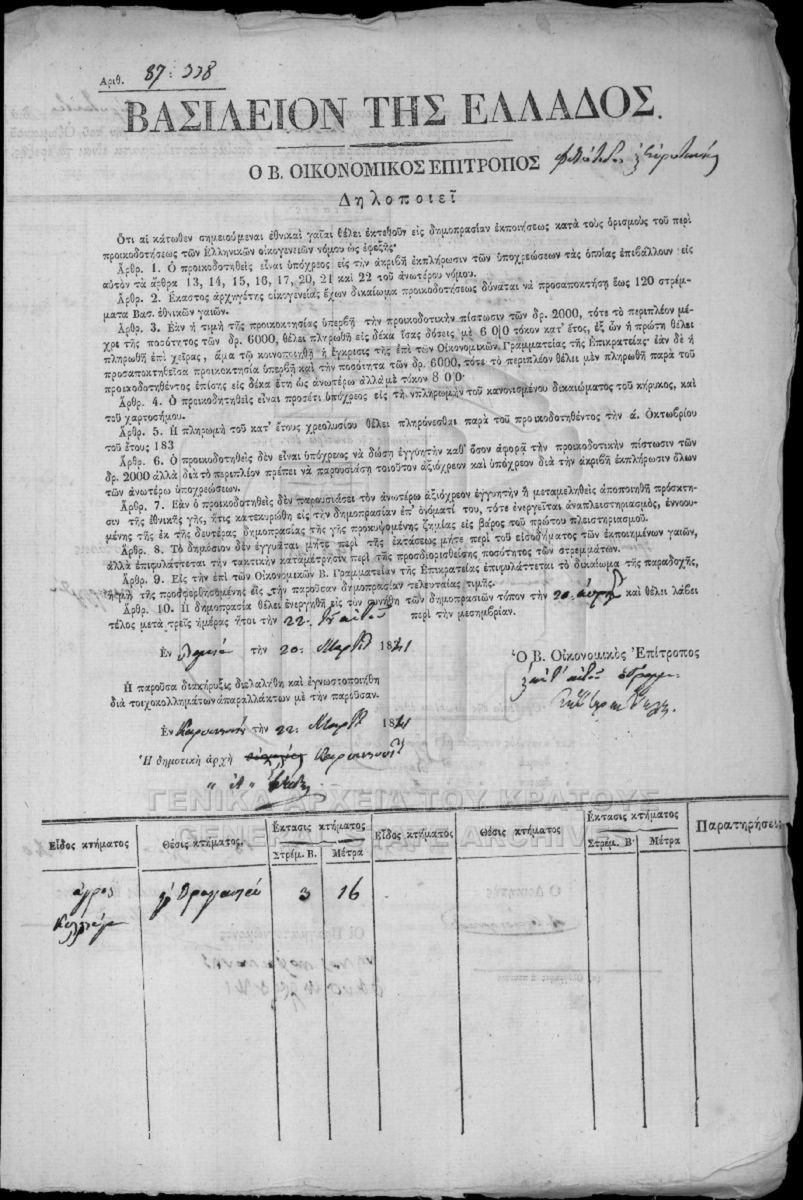 Αριθ. 87: 338
ΒΑΣΙΛΕΙΟΝ ΤΗΣ ΕΛΛΑΔΟΣ.
Ο Β. ΟΙΚΟΝΟΜΙΚΟΣ ΕΠΙΤΡΟΠΟΣ
Δηλοποιεῖ
Ότι αἱ κάτωθεν σημειούμεναι ἐθνικαὶ γαῖαι θέλει ἐκτεθοῦν εἰς δημοπρασίαν ἐκποιήσεως κατὰ τοὺς ὁρισμοὺς τοῦ περὶ
προικοδοτήσεως τῶν Ἑλληνικῶν οἰκογενειῶν νόμου ὡς ἐφεξῆς·
Ἄρθρ. 1. Ὁ προικοδοτηθεὶς εἶναι ὑπόχρεος εἰς τὴν ἀκριβῆ ἐκπλήρωσιν τῶν ὑποχρεώσεων τὰς ὁποίας ἐπιβάλλουν εἰς
αὐτὸν τὰ ἄρθρα 13, 14, 15, 16, 17, 20, 21 καὶ 22 τοῦ ἀνωτέρου νόμου.
Ἄρθρ. 2. Ἕκαστος ἀρχηγέτης οἰκογενείας ἔχων δικαίωμα προικοδοτήσεως δύναται νὰ προσαποκτήσῃ ἕως 120 στρέμ-
ματα Βασ. ἐθνικῶν γαιῶν.
Ἄρθρ. 3. Ἐὰν ἡ τιμὴ τῆς προικοκτησίας ὑπερβῇ τὴν προικοδοτικὴν πίστωσιν τῶν δρ. 2000, τότε τὸ περιπλέον μέ-
χρι τῆς ποσότητος τῶν δρ. 6000, θέλει πληρωθῆ εἰς δέκα ἴσας δόσεις μὲ 6 0|0 τόκον κατ' ἔτος, ἐξ ὧν ἡ πρώτη θέλει
πληρωθῆ ἐπὶ χεῖρας, ἅμα τῷ κοινοποιηθῇ ἡ ἔγκρισις τῆς ἐπὶ τῶν Οἰκονομικῶν Γραμματείας τῆς Ἐπικρατείας· ἐὰν δὲ ἡ
προσαποκτηθεῖσα προικοκτησία ὑπερβῇ καὶ τὴν ποσότητα τῶν δρ. 6000, τότε τὸ περιπλέον θέλει μὲν πληρωθῆ παρὰ τοῦ
προικοδοτηθέντος ἐπίσης εἰς δέκα ἔτη ὡς ἀνωτέρω ἀλλὰ μὲ τόκον 8 0 0.
Ἄρθρ. 4. Ὁ προικοδητηθεὶς εἶναι προσέτι ὑπόχρεος εἰς τὴν πληρωμὴν τοῦ κανονισμένου δικαιώματος τοῦ κήρυκος, καὶ
τοῦ χαρτοσήμου.
Ἄρθρ. 5. Ἡ πληρωμὴ τοῦ κατ' ἔτους χρεολυσίου θέλει πληρόνεσθαι παρὰ τοῦ προικοδοτηθέντος τὴν ά. Ὀκτωβρίου
τοῦ ἔτους 183
Ἄρθρ. 6. Ὁ προικοδοτηθεὶς δὲν εἶναι ὑπόχρεως νὰ δώσῃ ἐγγυητὴν καθ' ὅσον ἀφορᾷ τὴν προικοδοτικὴν πίστωσιν τῶν
δρ. 2000 ἀλλὰ διὰ τὸ περιπλέον πρέπει νὰ παρουσιάσῃ τοιοῦτον ἀξιόχρεον καὶ ὑπόχρεον διὰ τὴν ἀκριβῆ ἐκπλήρωσιν ὅλων
τῶν ἀνωτέρω ὑποχρεώσεων.
Ἄρθρ. 7. Ἐὰν ὁ προικοδοτηθεὶς δὲν παρουσιάσει τὸν ἀνωτέρω ἀξιόχρεον ἐγγυητὴν ἢ μεταμεληθεὶς ἀποποιηθῇ πρόσκτη-
σιν τῆς ἐθνικῆς γῆς, ἥτις κατεκυρώθη εἰς τὴν δημοπρασίαν ἐπ' ὀνόματί του, τότε ἐνεργεῖται ἀναπλειστηριασμὸς, ἐννοου-
μένης τῆς ἐκ τῆς δευτέρας δημοπρασίας τῆς γῆς προκυψομένης ζημίας εἰς βάρος τοῦ πρώτου πλειστηριασμοῦ.
Ἄρθρ. 8. Τὸ δημόσιον δὲν ἐγγυᾶται μήτε περὶ τῆς ἐκτάσεως μήτε περὶ τοῦ εἰσοδήματος τῶν ἐκποιημένων γαιῶν,
ἀλλὰ ἐπιφυλάττεται τὴν τακτικὴν καταμέτρησιν περὶ τῆς προσδιορισθείσης ποσότητος τῶν στρεμμάτων.
Ἄρθρ. 9. Εἰς τὴν ἐπὶ τῶν Οἰκονομικῶν Β. Γραμματείαν τῆς Ἐπικρατείας ἐπιφυλάττεται τὸ δικαίωμα τῆς παραδοχῆς,
ἢ μὴ τῆς προσφερθησομένης εἰς τὴν παροῦσαν δημοπρασίαν τελευταίας τιμῆς.
Ἄρθρ. 10. Ἡ δημοπρασία θέλει ἐνεργηθῆ εἰς τὸν συνήθη τῶν δημοπρασιῶν τόπον τὴν 20. καὶ θέλει λάβει
τέλος μετὰ τρεῖς ἡμέρας ἤτοι τὴν 22. περὶ τὴν μεσημβρίαν.
Ἐν τὴν 20. 1841
Ὁ Β. Οἰκονομικὸς Ἐπίτροπος
Ἡ παροῦσα διακήρυξις διελαλήθη καὶ ἐγνωστοποιήθη
διὰ τοιχοκολλημάτων ἀπαραλλάκτων μὲ τὴν παροῦσαν.
Ἐν τὴν 22. 1841
Ἡ δημοτικὴ ἀρχὴ
ΓΕΝΙΚΑ ΑΡΧΕΙΑ ΤΟΥ ΚΡΑΤΟΥΣ
GENERAL STATE ARCHIVES
Εἶδος κτήματος Θέσις κτήματος. Ἔκτασις κτήματος Εἶδος κτήματος Θέσις κτήματος Ἔκτασις κτήματος Παρατηρήσεις
Στρέμ. Β. Μέτρα Στρέμ. Β' Μέτρα
ἀγρος 3 16